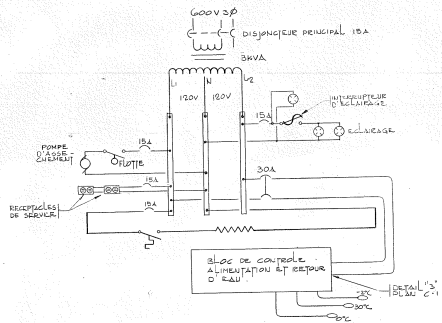 600V 3Ø
DISJONCTEUR PRINCIPAL 15A
3KVA
L1
N
L2
120V
120V
15A
INTERRUPTEUR
D'ECLAIRAGE
ECLAIRAGE
POMPE
D'ASSE-
CHEMENT
15A
FLOTTE
30A
15A
RECEPTACLES
DE SERVICE
15A
BLOC DE CONTROLE
ALIMENTATION ET RETOUR
D'EAU.
DETAIL "3"
PLAN C-1
-3°C
30°C
0°C